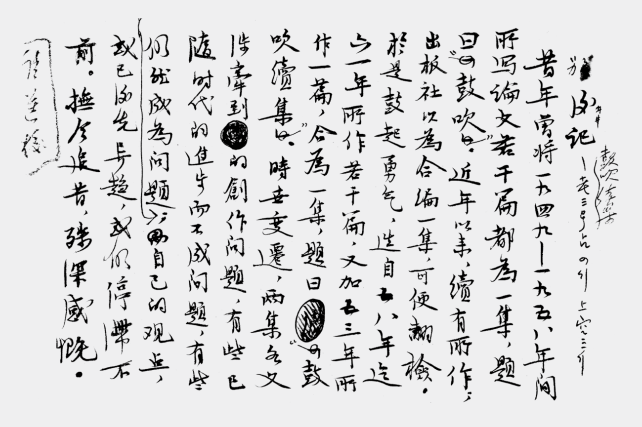 后记
鼓吹续集
昔年曾将一九四九—一九五八年间
所写论文若干篇都为一集，题
曰《鼓吹》。近年以来，续有所作，
出版社以为合编一集，可便翻检。
於是鼓起勇气，选自五八年迄
六一年所作若干篇，又加五三年所
作一篇，合为一集，题曰《鼓
吹续集》。时世变迁，两集各文
涉牵到的创作问题，有些已
随时代的进步而不成问题，有些
仍然成为问题；而自己的观点，
或已沙先长趋，或仍停滞不
前。抚今追昔，殊深感慨。